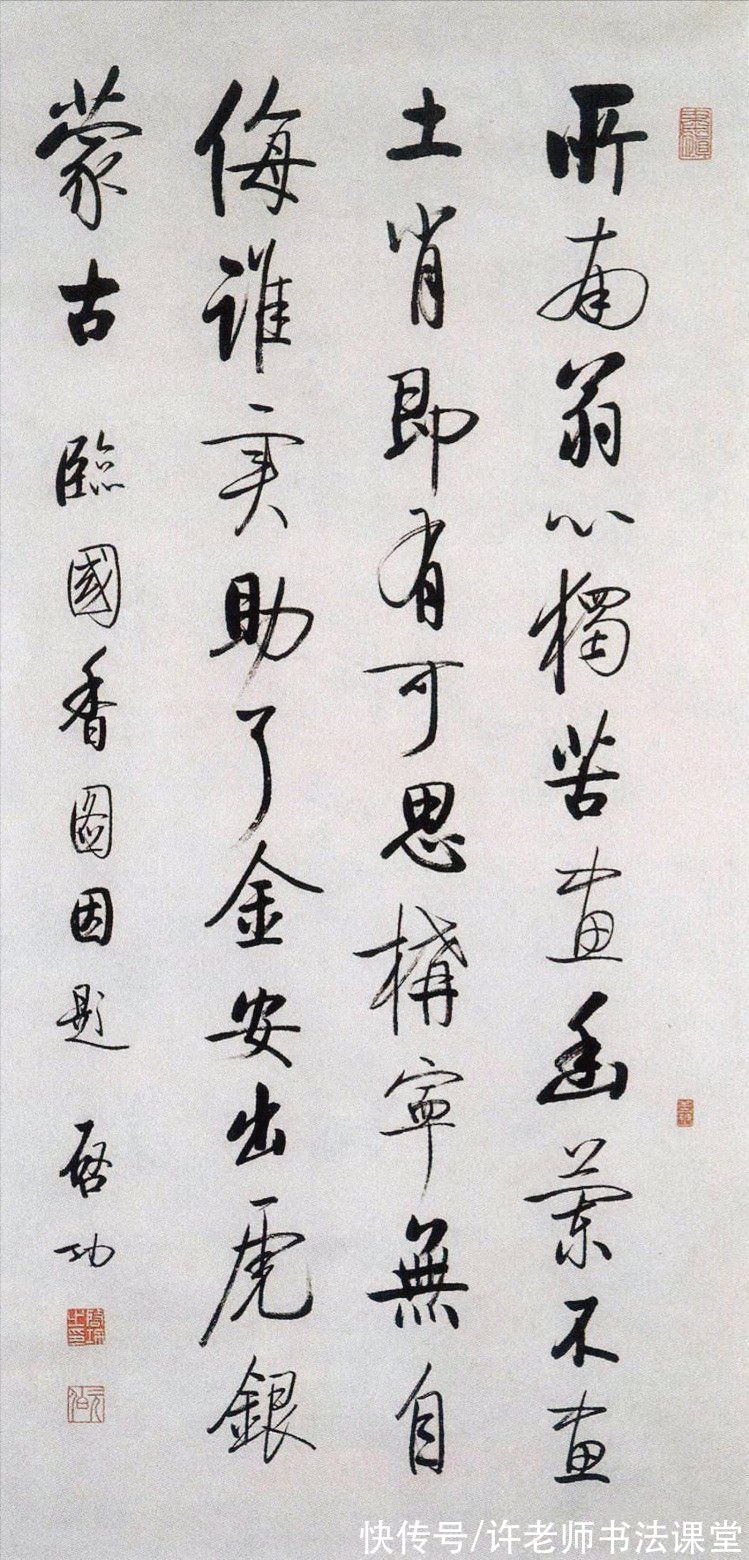 所南翁心獨苦画幽蘭不画
土肖即有可思構寧無自
侮誰实助了金安出虎銀
蒙古 臨國香圖因題 啓功
快传号/许老师书法课堂